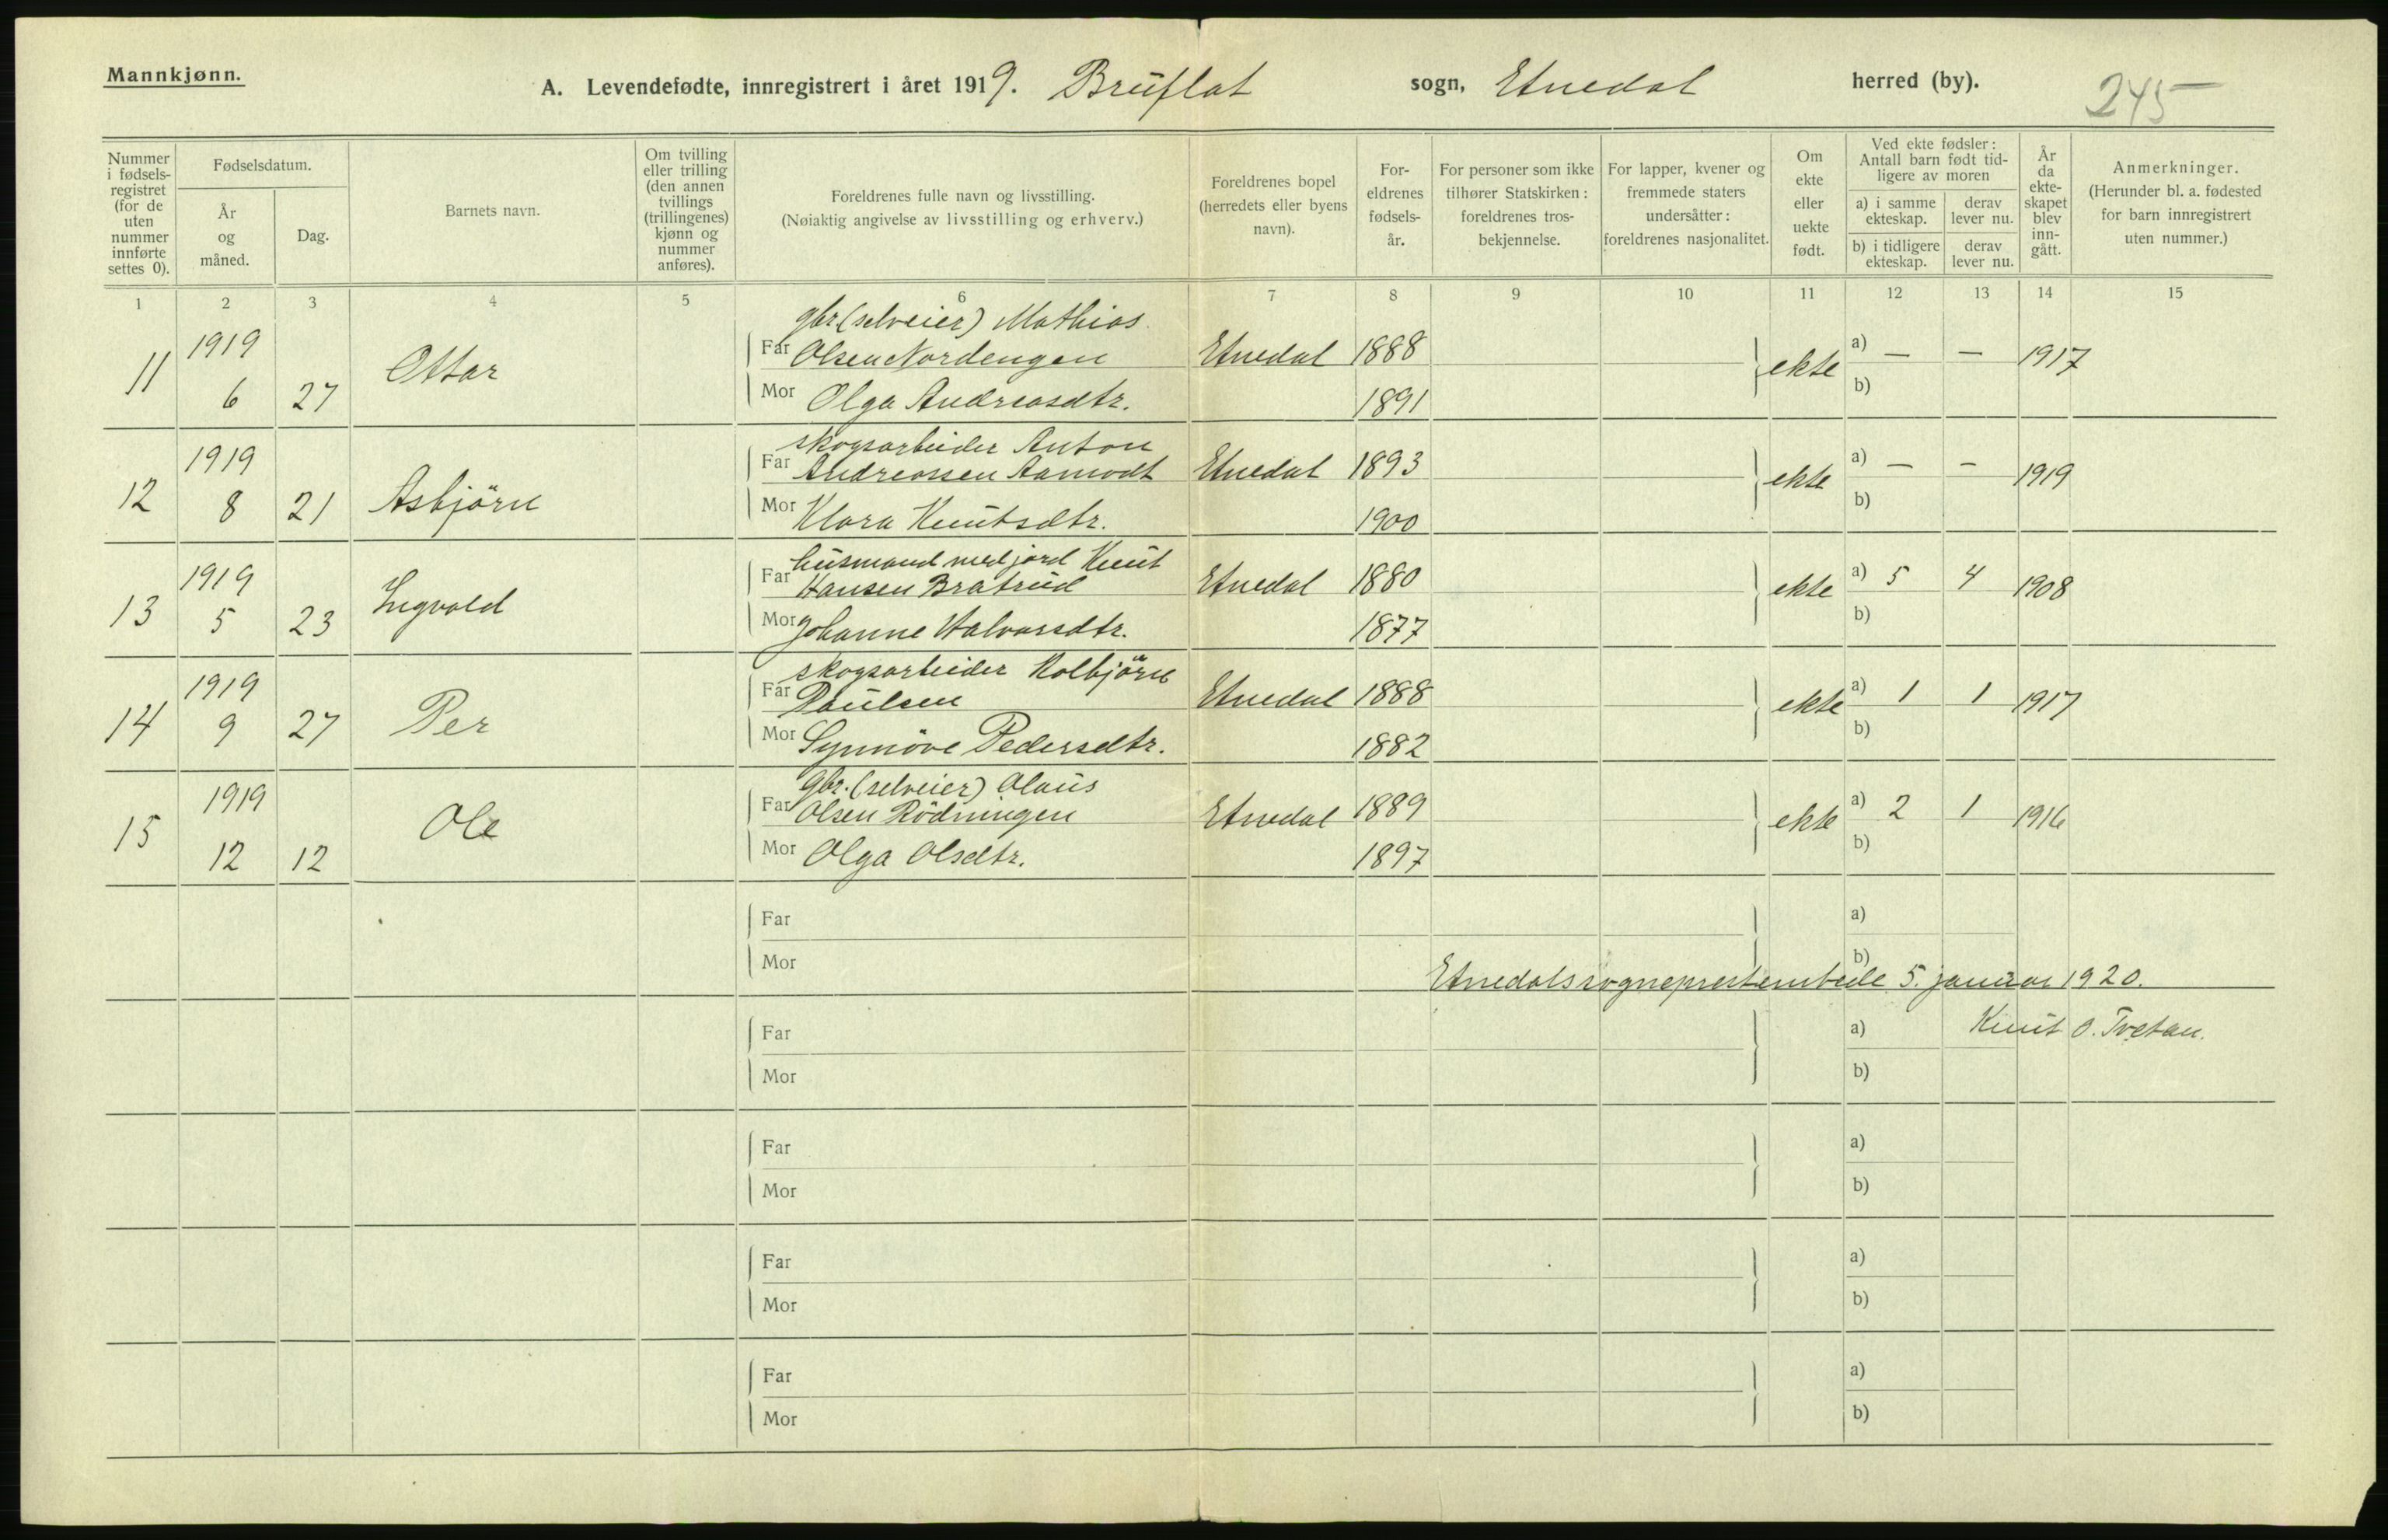 Mannkjønn.
A. Levendefødte, innregistrert i året 1919. Bruflat sogn, Etnedal herred (by). 245
Nummer i fødsels-registret (for de uten nummer innførte settes 0).
Fødselsdatum.
År og måned.
Dag.
Barnets navn.
Om tvilling eller trilling (den annen tvillings (trillingenes) kjønn og nummer anføres).
Foreldrenes fulle navn og livsstilling.
(Nøiaktig angivelse av livsstilling og erhverv.)
Foreldrenes bopel (herredets eller byens navn).
For-eldrenes fødsels-år.
For personer som ikke tilhører Statskirken: foreldrenes tros-bekjennelse.
For lapper, kvener og fremmede staters undersåtter: foreldrenes nasjonalitet.
Om ekte eller uekte født.
Ved ekte fødsler: Antall barn født tid-ligere av moren
a) i samme ekteskap.
derav lever nu.
b) i tidligere ekteskap.
derav lever nu.
År da ekte-skapet blev inn-gått.
Anmerkninger.
(Herunder bl. a. fødested for barn innregistrert uten nummer.)
1 2 3 4 5 6 7 8 9 10 11 12 13 14 15
gbr. (selveier) Mathias
11 1919 6 27 Ottar Far Olsen Nordengen Etnedal 1888 ekte a) — — 1917
Mor Olga Andreasdtr. 1891 b)
skogsarbeider Anton
12 1919 8 21 Asbjörn Far Andreassen Aamodt Etnedal 1893 ekte a) — — 1919
Mor Klara Knutsdtr. 1900 b)
husmand med jord Knut
13 1919 5 23 Ingvald Far Hansen Bratrud Etnedal 1880 ekte a) 5 4 1908
Mor Johanne Halvorsdtr. 1877 b)
skogsarbeider Kolbjörn
14 1919 9 27 Per Far Paulsen Etnedal 1888 ekte a) 1 1 1917
Mor Synnöve Pedersdtr. 1882 b)
Gbr. (selveier) Olaus
15 1919 12 12 Ole Far Olsen Rödningen Etnedal 1889 ekte a) 2 1 1916
Mor Olga Olsdtr. 1897 b)
Far a)
Mor b)
Etnedal sogneprestembede 5. januar 1920.
Far a) Knut O. Tvetan.
Mor b)
Far a)
Mor b)
Far a)
Mor b)
Far a)
Mor b)